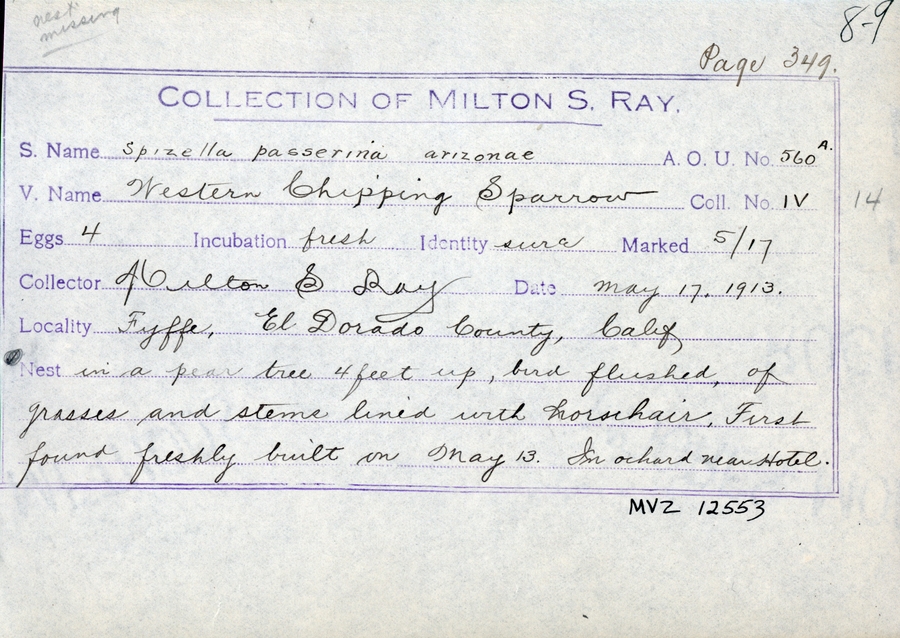 nest
missing
8-9
Page 349.
COLLECTION OF MILTON S. RAY.
S. Name Spizella passerina arizonae A. O. U. No. 560 A.
V. Name Western Chipping Sparrow Coll. No. IV 14
Eggs 4 Incubation fresh Identity sure Marked 5/17
Collector Milton S Ray Date May 17, 1913.
Locality Fyffe, El Dorado County, Calif
Nest in a pear tree 4 feet up, bird flushed, of
grasses and stems lined with horsehair. First
found freshly built on May 13. In ochard near Hotel.
MVZ 12553